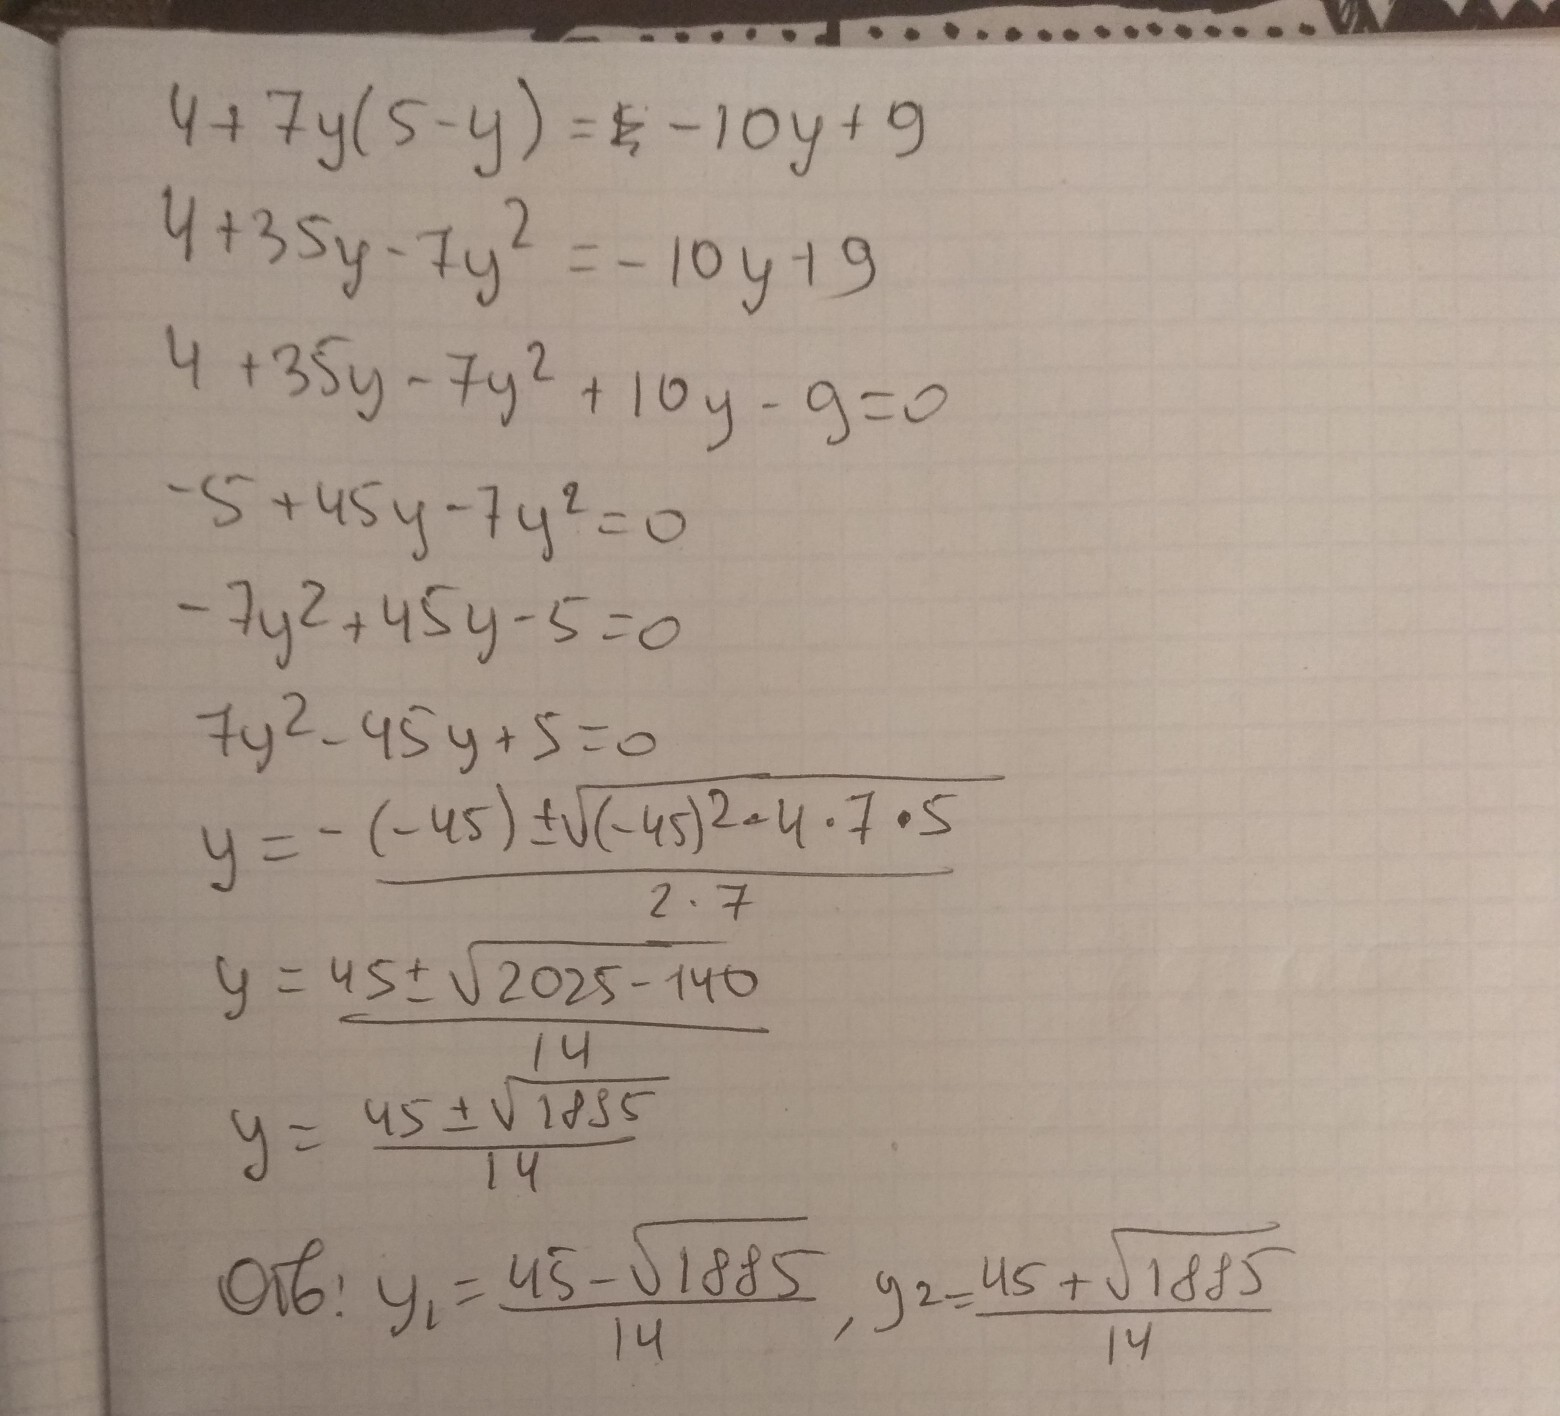 4+7y(5-y)= -10y+9
4+35y-7y²=-10y+9
4+35y-7y²+10y-9=0
-5+45y-7y²=0
-7y²+45y-5=0
7y²-45y+5=0
y=-(-45)±√(-45)²-4·7·5
2·7
y=45±√2025-140
14
y=45±√1885
14
Отв: y₁=45-√1885/14, y₂=45+√1885/14